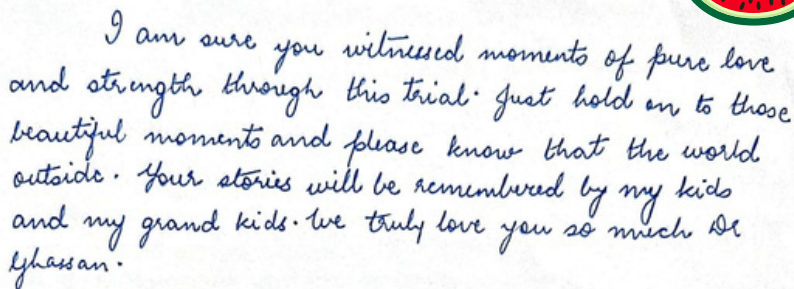 I am sure you witnessed moments of pure love
and strength through this trial. Just hold on to those
beautiful moments and please know that the world
outside. Your stories will be remembered by my kids
and my grand kids. We truly love you so much Dr
Ghassan.